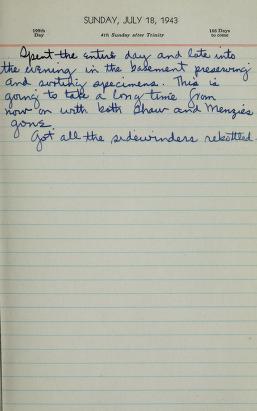 SUNDAY, JULY 18, 1943
199th Day
4th Sunday after Trinity
166 Days to come
Spent the entire day and late into
the evening in the basement preserving
and sorting specimens. This is
going to take a long time from
now on with both Shaw and Menzies
gone.
Got all the sidewinders rebottled.